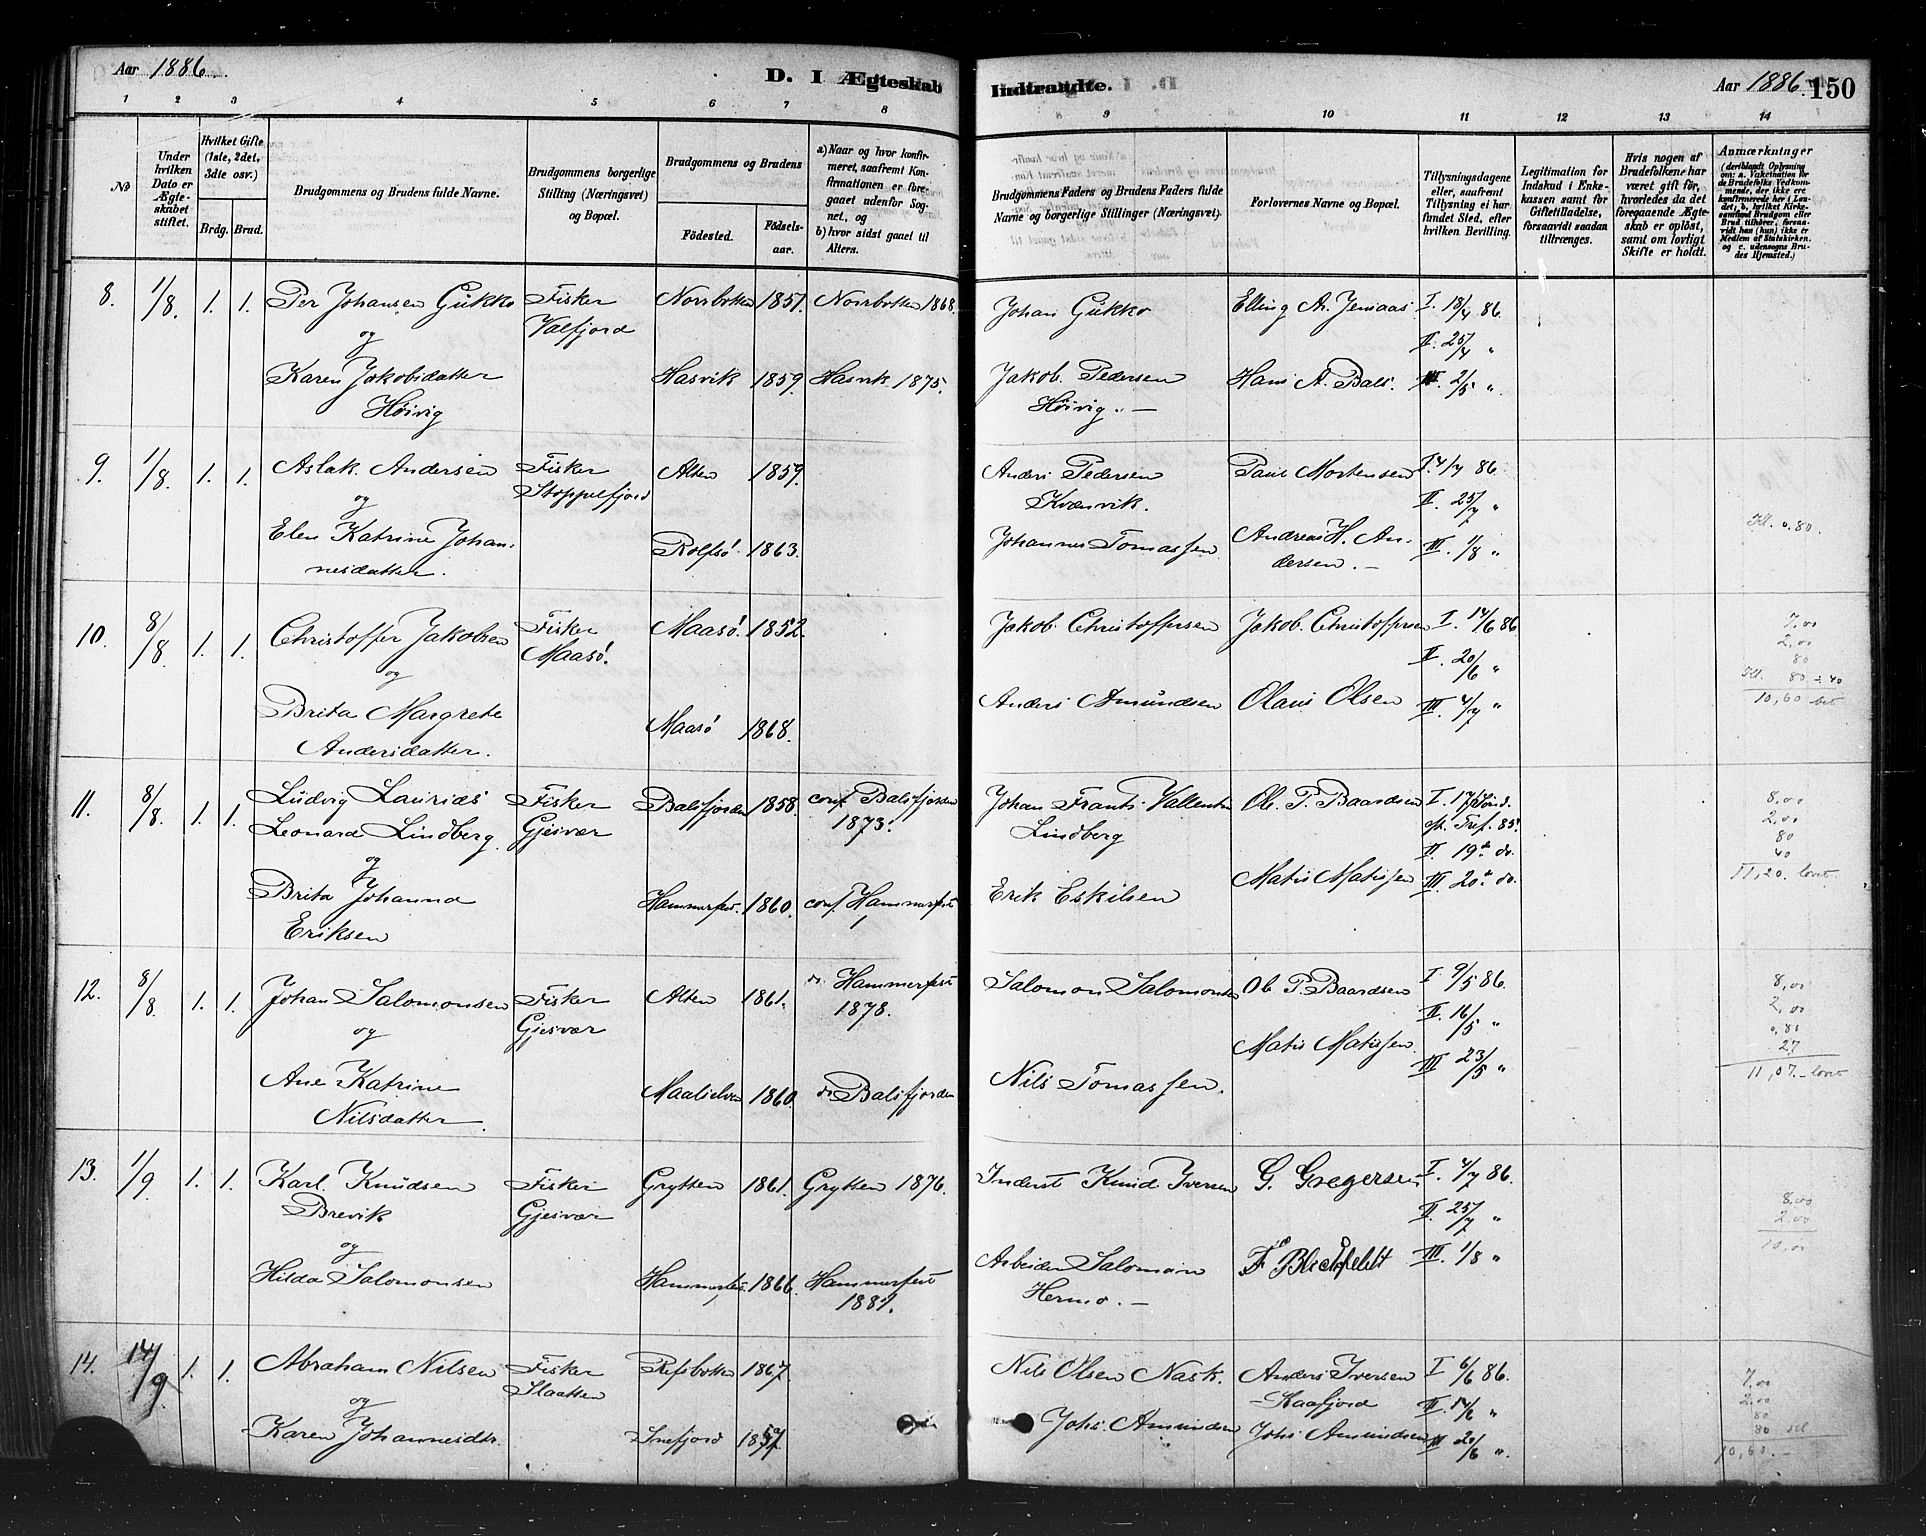 Aar 1886.
D. I Ægteskab
Indtraadte.
Aar 1886.
150
1 2 3 4 5 6 7 8
9 10 11 12 13 14
No
Under hvilken Dato er Ægteskabet stiftet.
Hvilket Gifte (1ste, 2det, 3die osv.)
Brdg. Brud.
Brudgommens og Brudens fulde Navne.
Brudgommens borgerlige Stilling (Næringsvei) og Bopæl.
Brudgommens og Brudens
Födested.
Födselsaar.
a) Naar og hvor konfirmeret, saafremt Konfirmationen er foregaaet udenfor Sognet, og
b) hvor sidst gaaet til Alters.
Brudgommens Faders og Brudens Faders fulde Navne og borgerlige Stillinger (Næringsvei).
Forlovernes Navne og Bopæl.
Tillysningsdagene eller, saafremt Tillysning ei har fundet Sted, efter hvilken Bevilling.
Legitimation for Indskud i Enkekassen samt for Giftetilladelse, forsaavidt saadan tiltrænges.
Hvis nogen af Brudefolkene har været gift før, hvorledes da det foregaaende Ægteskab er oplöst, samt om lovligt Skifte er holdt.
Anmærkninger
(deriblandt Oplysning om: a. Vakcination for de Brudefolks Vedkommende, der ikke ere konfirmerede her i Landet, b. hvilket Kirkesamfund Brudgom eller Brud tilhører, forsaavidt han (hun) ikke er Medlem af Statskirken, og c. udensogns Brudes Hjemsted.)
8. 1/8. 1. 1. Per Johansen Gukko Fisker Norrbotten 1857. Norrbotten 1868. Johan Gukko Elling A. Jensaas I. 18/4 86.
og Valfjord II. 25/4 "
Karen Jakobsdatter Hasvik 1859. Hasvik 1875. Jakob Pedersen Hans A. Bals. III. 2/5 "
Höivig Höivig. —
9. 1/8. 1. 1. Aslak Andersen Fisker Alten 1859. Anders Pedersen Paul Mortensen I. 4/7 86.
og Stoppelfjord Kvænvik. II. 25/7 "
Elen Katrine Johan- Rolfsö. 1863. Johannes Tomassen. Andreas H. An- III. 1/8 " Kl. 0,80
nesdatter. dersen. —
10. 8/8. 1. 1. Christoffer Jakobsen Fisker Maasö. 1852. Jakob Christoffersen Jakob Christoffersen I. 14/6 86 7,00
og Maasö. II. 20/6 " 2,00
80
Brita Margrete Maasö 1868. Anders Amundsen Olaus Olsen III. 4/7 " Kl. 80 ÷ 40
Andersdatter. 10,60 bet
11. 8/8. 1. 1. Ludvig Laurids Fisker Balsfjorden 1858. conf. Balsfjorden Johan Frants Vallentin Ol. P. Baardsen I. 17/Sönd. 8,00
Leonard Lindberg. Gjesvær 1873. Lindberg eft. Tref. 85. 2,00
og II. 19de do. 80
40
Brita Johanna Hammerfest. 1860. conf. Hammerfest Erik Eskilsen Matis Matissen III 20de do. 11,20.
Eriksen
12. 8/8. 1. 1. Johan Salomonsen Fisker Alten 1861. do Hammerfest Salomon Salomonsen Ol. P. Baardsen I 9/5 86. 8,00
og Gjesvær 1878. II. 16/5 " 2,00
0,80
Matis Matissen. III 23/5 " 27
Ane Katrine Maalselven 1860. do Balsfjorden Nils Tomassen. 11,07.
Nilsdatter.
13. 1/9. 1. 1. Karl Knudsen Fisker Grytten 1861. Grytten 1876. Inderst Knud Iversen G. Gregersen I. 4/7 86. 8,00
Brevik Gjesvær II. 25/7 " 2,00
og 10,00
Hilda Salomonsen Hammerfest 1866. Hammerfest Arbeider Salomon F Bleckfeldt III 1/8 "
1881. Hermo. —
14. 14/9. 1. 1. Abraham Nilsen Fisker Refsbotten 1867. Nils Olsen Nask. Anders Iversen I 6/6 86. 7,00
og Slaatten Kaafjord II. 14/6 " 2,00
80
Karen Johannesdtr. Snefjord 1857. Johs Amundsen Johs Amundsen III 20/6 ". 80 Kl
10,60.—